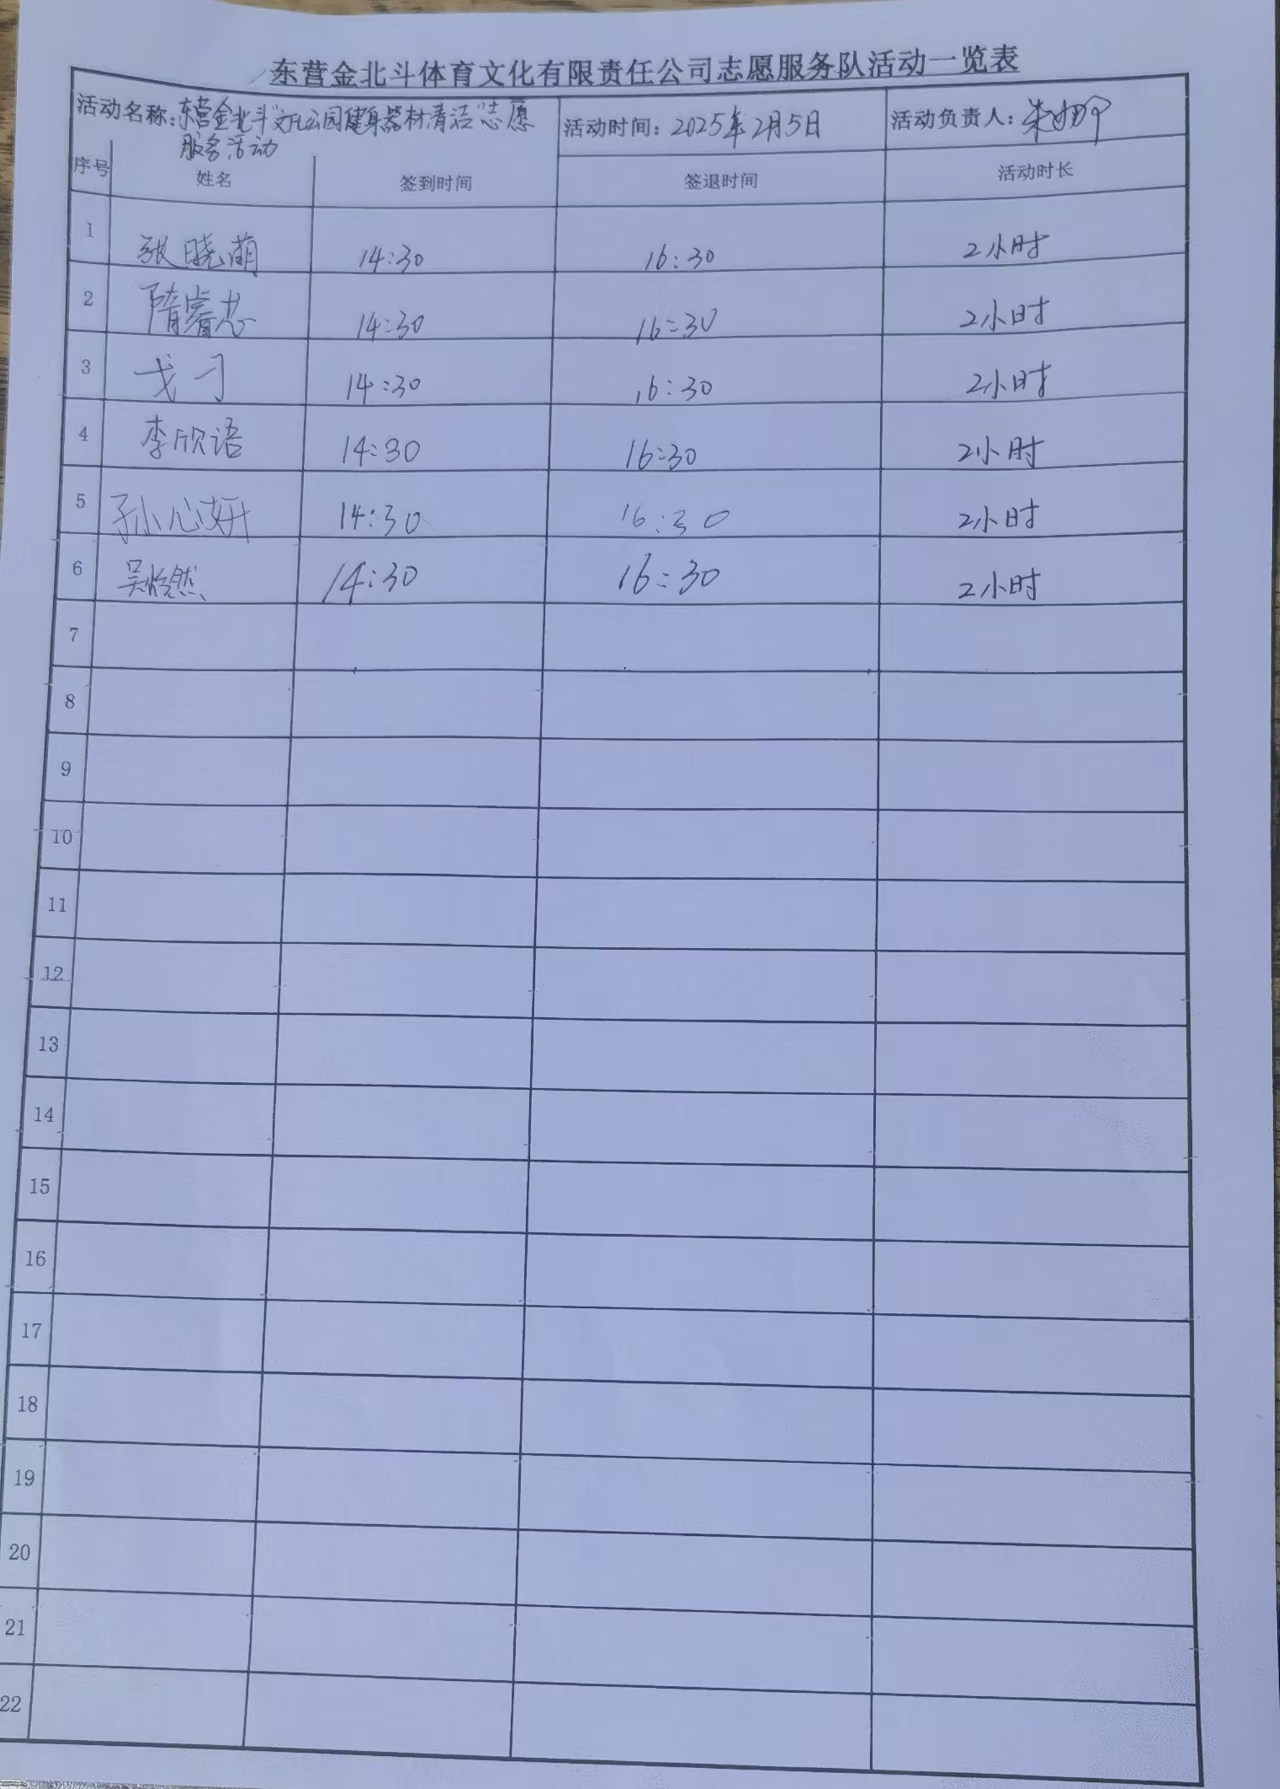 东营金北斗体育文化有限责任公司志愿服务队活动一览表
活动名称:东营金北斗"文化公园健身器材清洁"志愿 活动时间:2025年2月5日 活动负责人:
服务活动
序号 姓名 签到时间 签退时间 活动时长
1 张晓萌 14:30 16:30 2小时
2 隋睿忠 14:30 16:30 2小时
3 戈刁 14:30 16:30 2小时
4 李欣语 14:30 16:30 2小时
5 孙心妍 14:30 16:30 2小时
6 14:30 16:30 2小时
7
8
9
10
11
12
13
14
15
16
17
18
19
20
21
22